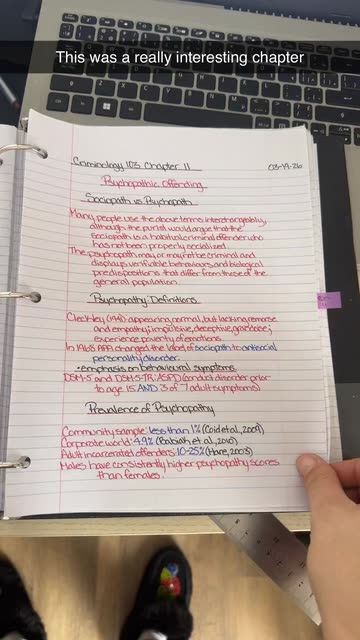 This was a really interesting chapter
Criminology 103 Chapter 11
03-19-26
Psychopathic Offending
Sociopath vs Psychopath
Many people use the above terms interchangeably,
although the purist would argue that the
sociopath is a habitual criminal offender who
has not been properly socialized.
The psychopath may or may not be criminal and
displays verifiable behaviours, and biological
predispositions that differ from those of the
general population.
Psychopathy Definitions
Cleckley (1941) appearing normal, but lacking remorse
and empathy; impulsive, deceptive, grandiose;
experience poverty of emotions.
In 1968 APA changed the label of sociopath to antisocial
personality disorder.
emphasis on behavioural symptoms
DSM-5 and DSM-5-TR: ASPD (conduct disorder prior
to age 15 AND 3 of 7 adult symptoms)
Prevalence of Psychopathy
Community sample: less than 1% (Coid et al., 2009)
Corporate world: 4% (Babiak et al., 2010)
Adult incarcerated offenders: 10-25% (Hare, 2003)
Males have consistently higher psychopathy scores
than females.